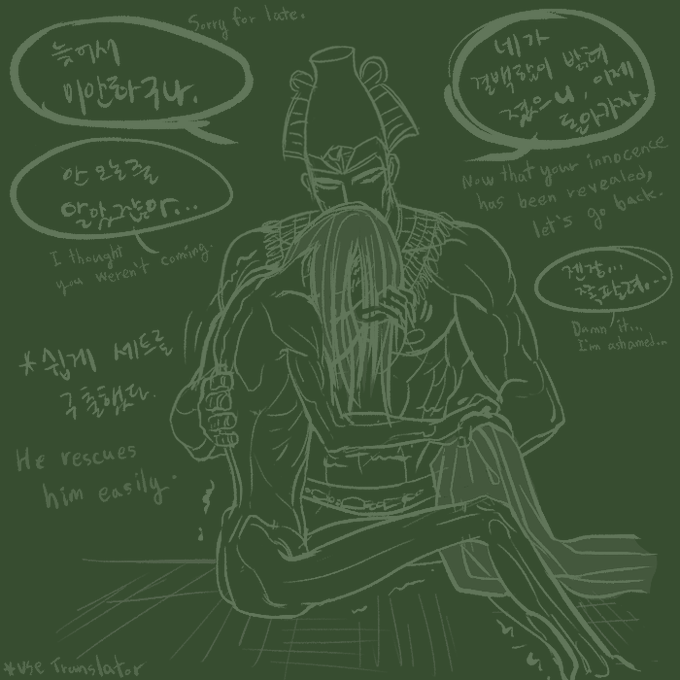 Sorry for late.
늦어서
미안하구나.
안 오는줄
알았잖아...
I thought
you weren't coming.
네가
결백함이 밝혀
졌으니, 이제
돌아가자.
Now that your innocence
has been revealed,
let's go back.
젠장...
쪽팔려...
Damn it...
I'm ashamed...
*쉽게 세트를
구출했다.
He rescues
him easily.
*use Translator